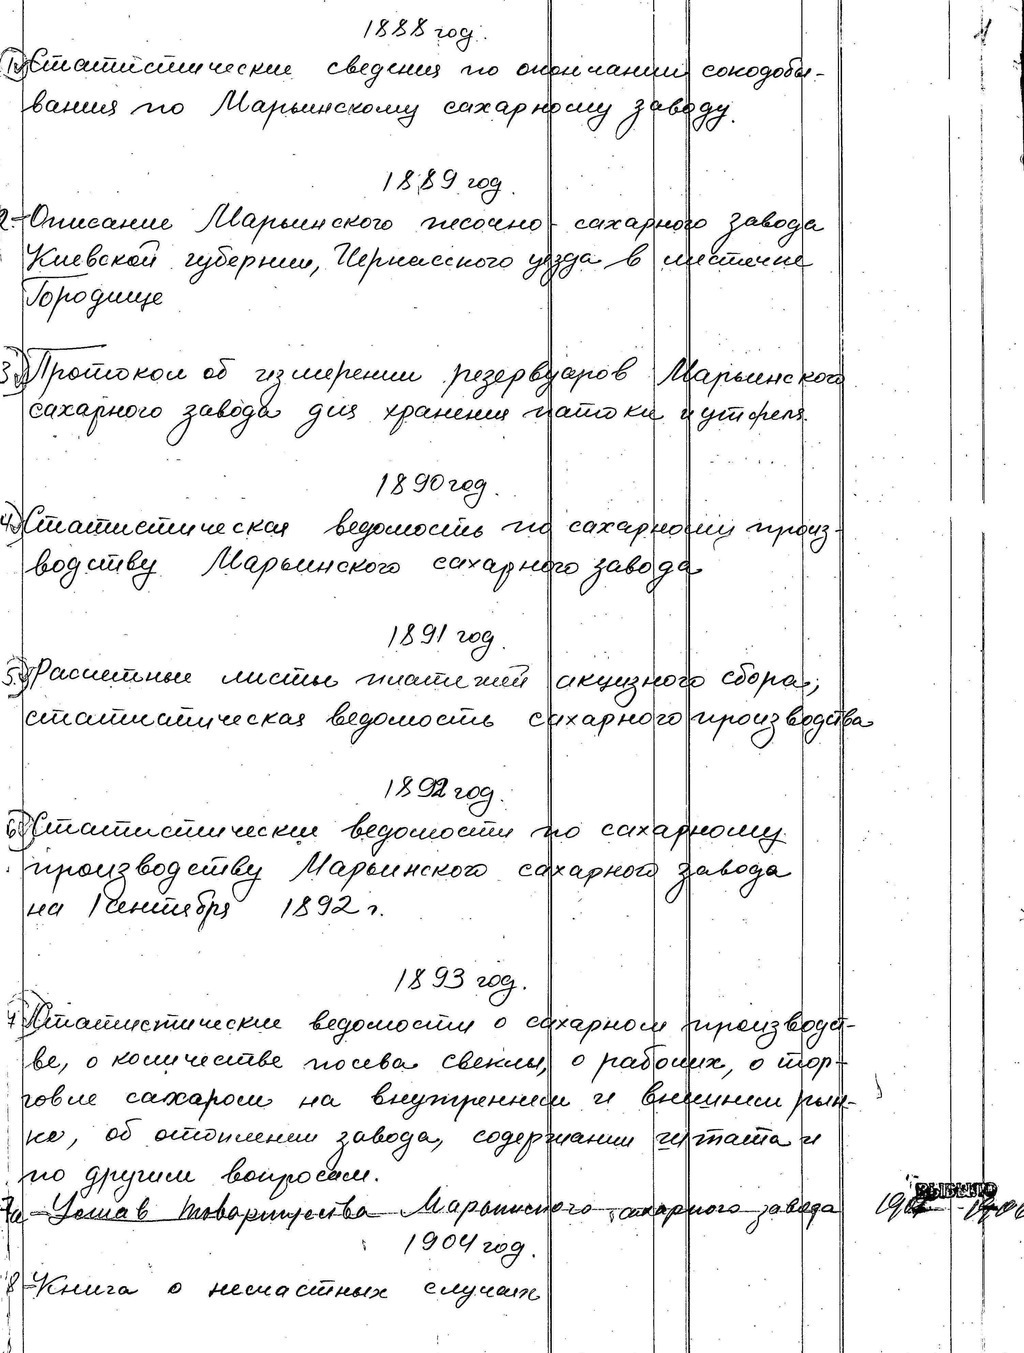 1888 год.
1. Статистические сведения по окончании сокодобы-
вания по Марьинскому сахарному заводу.
1889 год.
2. Описание Марьинского песочно-сахарного завода
Киевской губернии, Черкасского уезда в местечке
Городище
3. Протокол об измерении резервуаров Марьинского
сахарного завода для хранения патоки и утфеля.
1890 год.
4. Статистическая ведомость по сахарному произ-
водству Марьинского сахарного завода
1891 год.
5. Расчетные листы платежей акцизного сбора;
статистическая ведомость сахарного производства
1892 год.
6. Статистические ведомости по сахарному
производству Марьинского сахарного завода
на 1 сентября 1892 г.
1893 год.
7. Статистические ведомости о сахарном производст-
ве, о количестве посева свеклы, о рабочих, о тор-
говле сахаром на внутреннем и внешнем рын-
ке, об отоплении завода, содержании штата и
по другим вопросам.
7а Устав товарищества Марьинского сахарного завода
ВЫБЫЛО
1904 год.
8 Книга о несчастных случаях